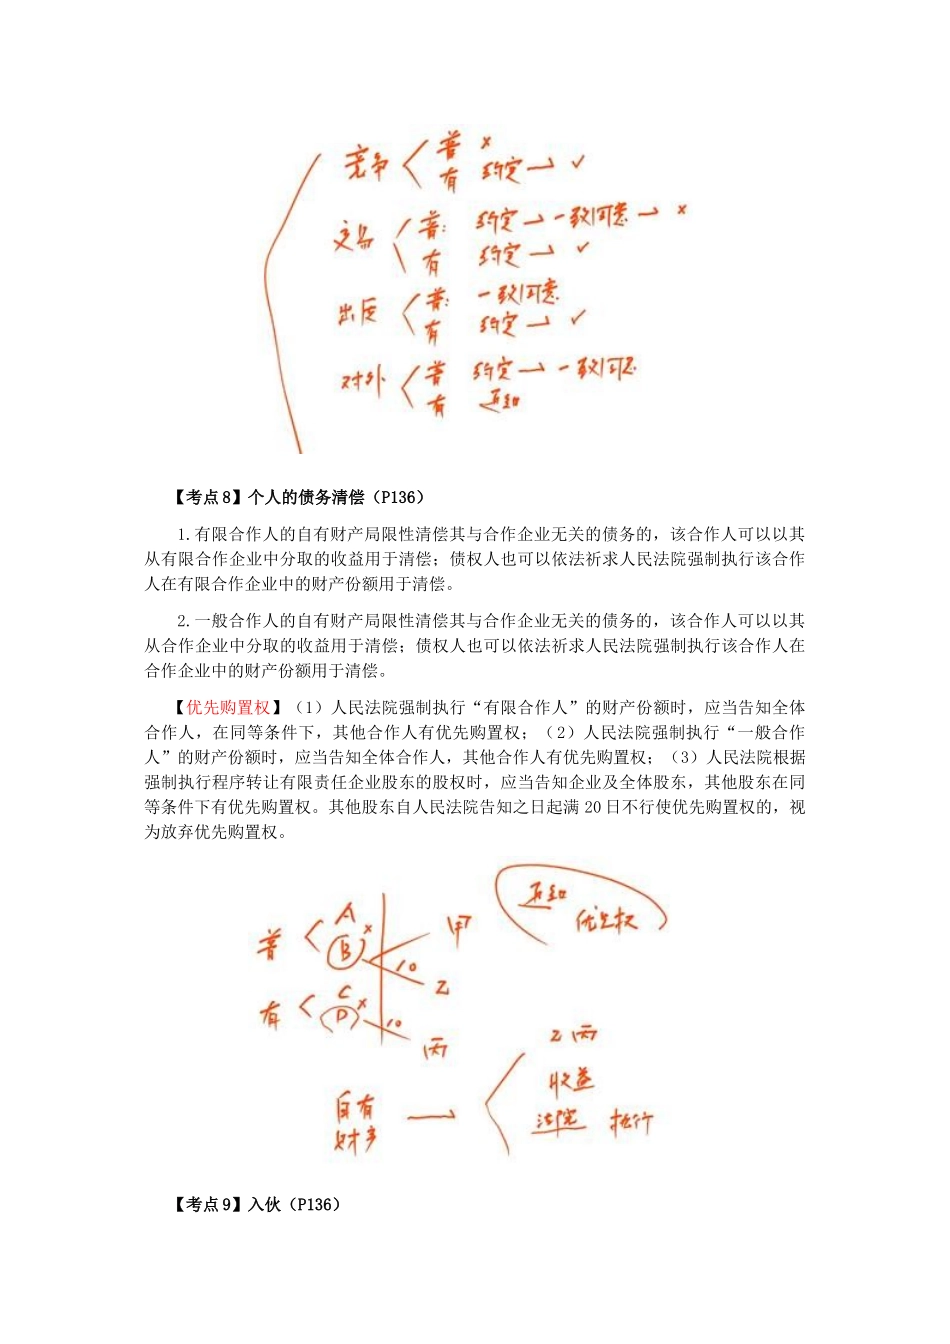 竞争 普 ×
有 约定→ ✓
交易 普: 约定→一致同意→ ×
有 约定→ ✓
出质 普: 一致同意
有 约定→ ✓
对外 普 约定→一致同意
有 通知
【考点 8】个人的债务清偿（P136）
1.有限合作人的自有财产局限性清偿其与合作企业无关的债务的，该合作人可以以其
从有限合作企业中分取的收益用于清偿；债权人也可以依法祈求人民法院强制执行该合作
人在有限合作企业中的财产份额用于清偿。
2.一般合作人的自有财产局限性清偿其与合作企业无关的债务的，该合作人可以以其
从合作企业中分取的收益用于清偿；债权人也可以依法祈求人民法院强制执行该合作人在
合作企业中的财产份额用于清偿。
【优先购置权】（1）人民法院强制执行“有限合作人”的财产份额时，应当告知全体
合作人，在同等条件下，其他合作人有优先购置权；（2）人民法院强制执行“一般合作
人”的财产份额时，应当告知全体合作人，其他合作人有优先购置权；（3）人民法院根据
强制执行程序转让有限责任企业股东的股权时，应当告知企业及全体股东，其他股东在同
等条件下有优先购置权。其他股东自人民法院告知之日起满 20 日不行使优先购置权的，视
为放弃优先购置权。
通知
优先权
普 A × 甲
B 10 乙
有 C ×
D 10 丙
乙 丙
自有 → 收益
财产 法院 执行
【考点 9】入伙（P136）